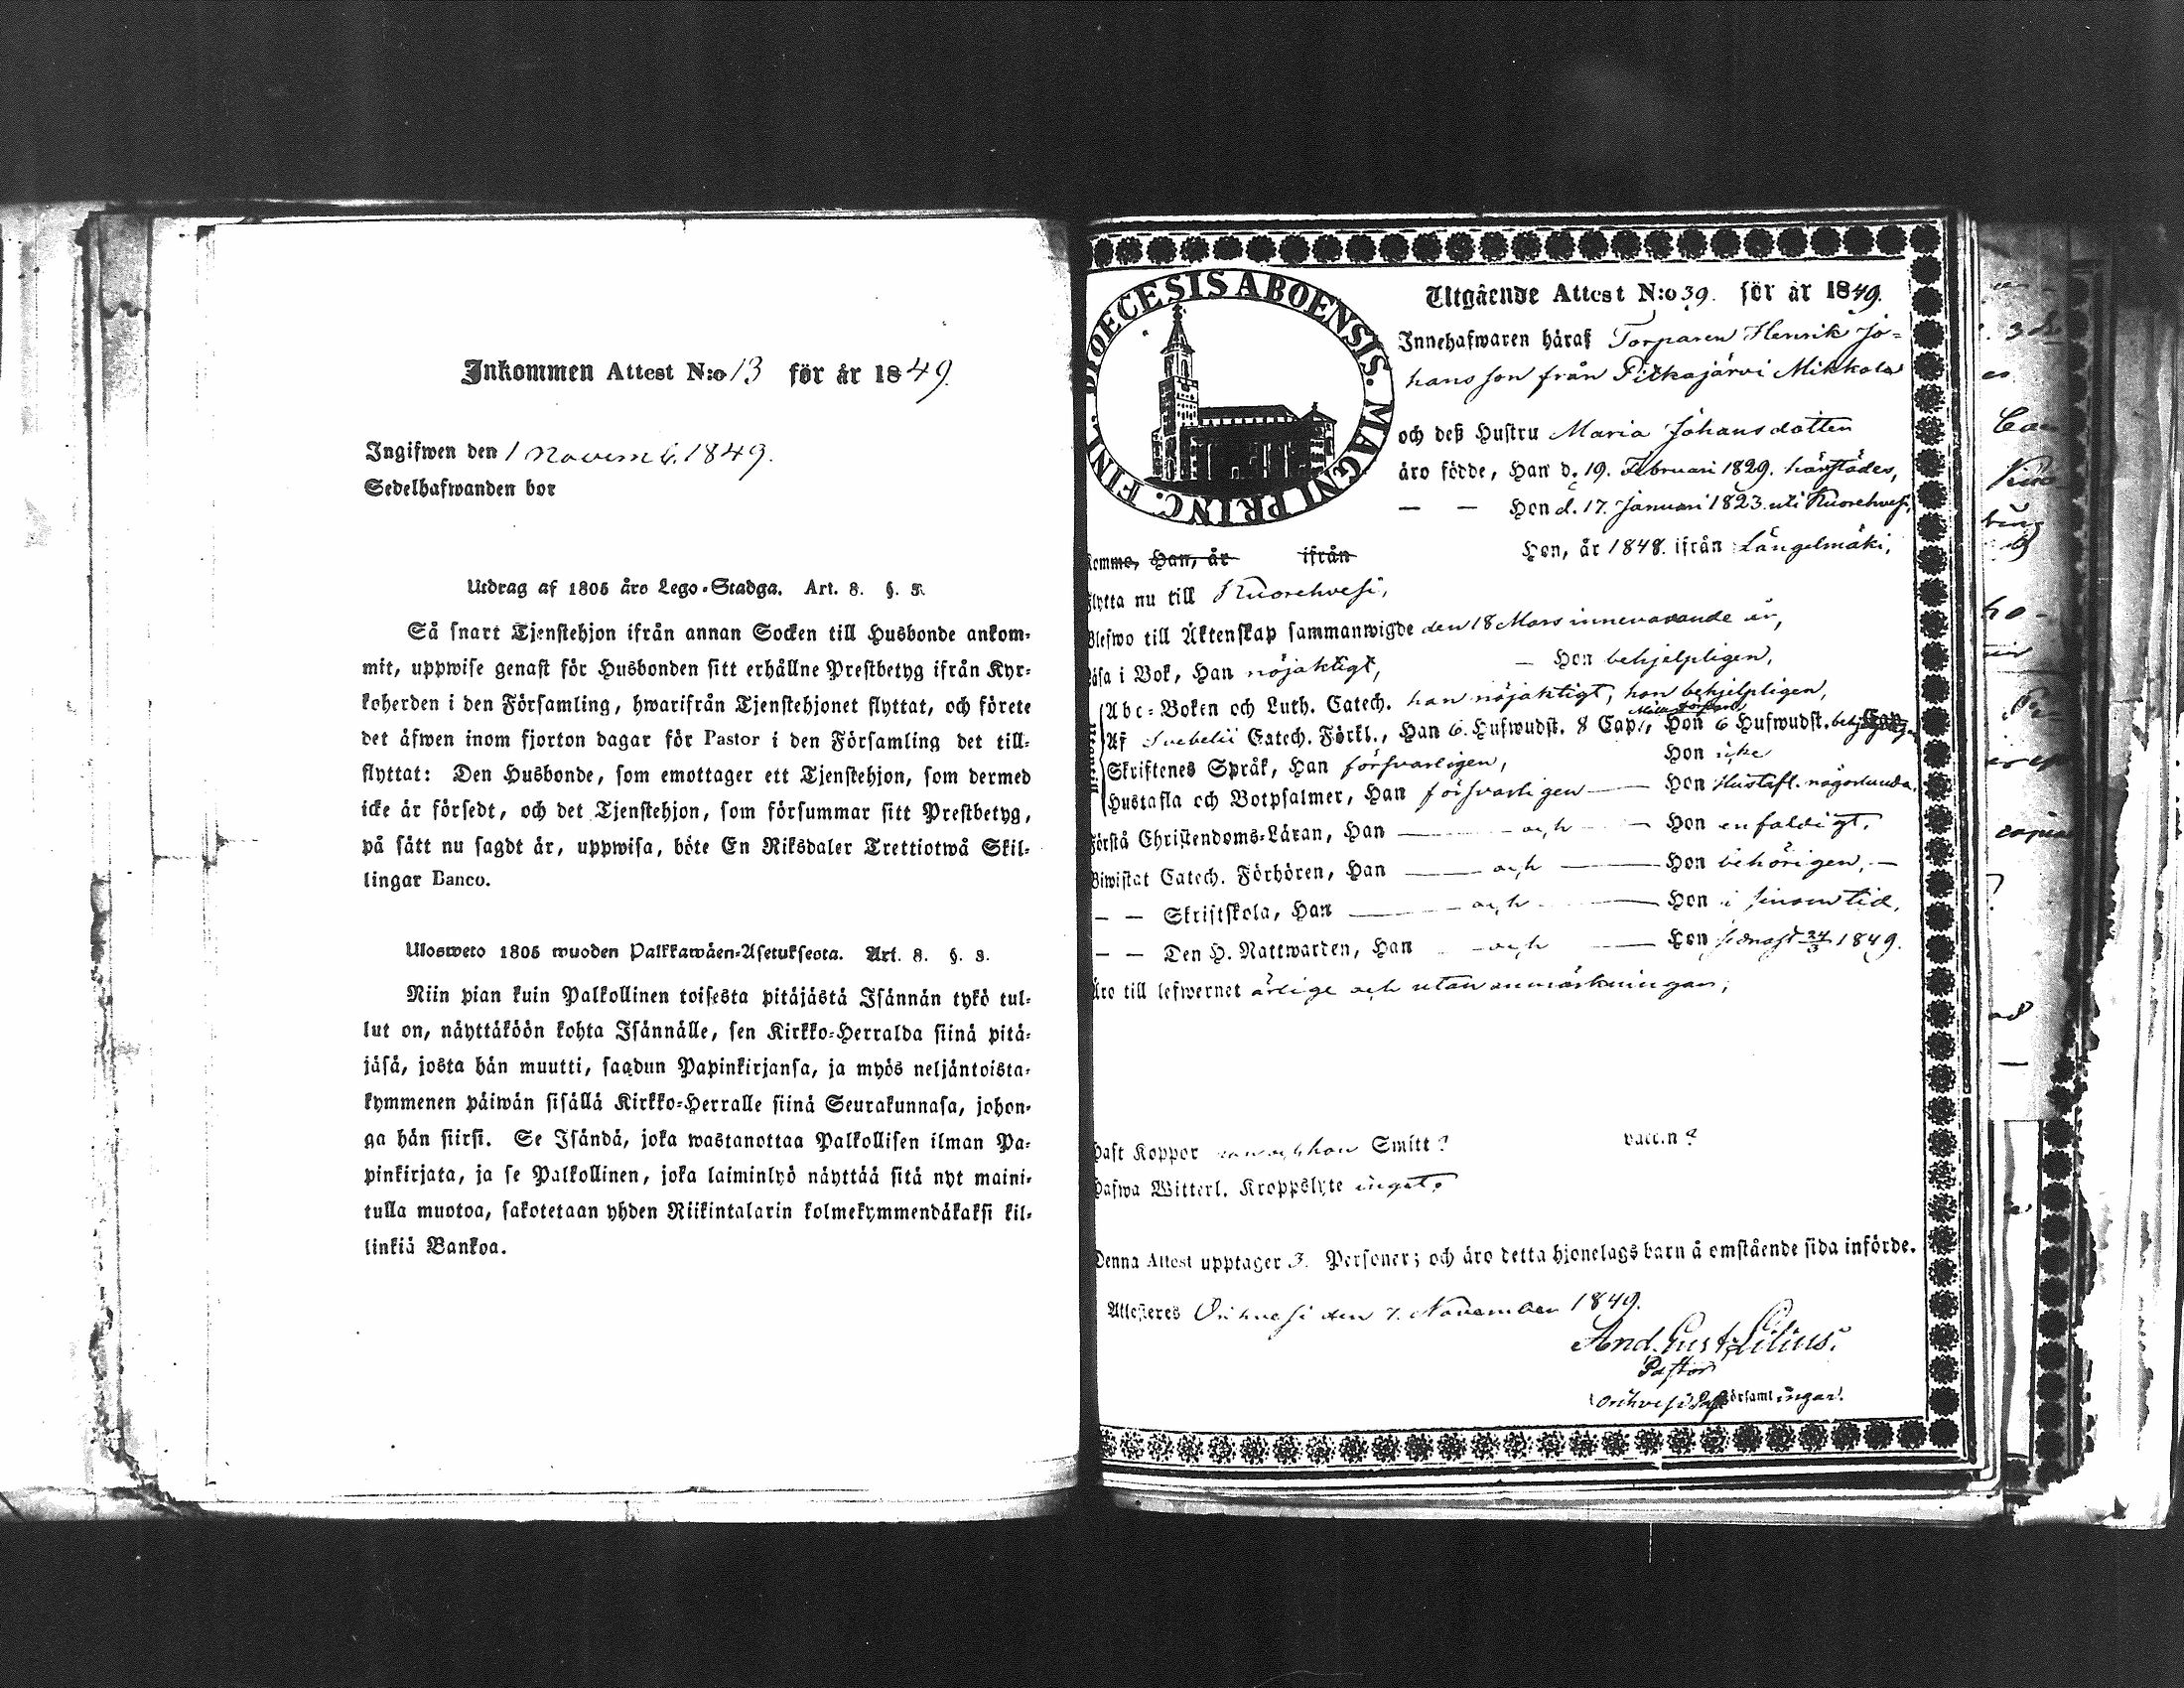 Inkommen Attest N:o 13 för år 1849.
Ingifwen den 1 Novemb. 1849.
Sedelhafwanden bor
Utdrag af 1805 års Lego-Stadga. Art. 8. §. 3.
Så snart Tjenstehjon ifrån annan Socken till Husbonde ankom-
mit, uppwise genast för Husbonden sitt erhållne Prestbetyg ifrån Kyr-
koherden i den Församling, hwarifrån Tjenstehjonet flyttat, och förete
det äfwen inom fjorton dagar för Pastor i den Församling det till-
flyttat: Den Husbonde, som emottager ett Tjenstehjon, som dermed
icke är försedt, och det Tjenstehjon, som försummar sitt Prestbetyg,
på sätt nu sagdt är, uppwisa, böte En Riksdaler Trettiotwå Skil-
lingar Banco.
Ulosweto 1805 wuoden Palkkawäen-Asetuksesta. Art. 8. §. 3.
Niin pian kuin Palkollinen toisesta pitäjästä Isännän tykö tul-
lut on, näyttäköön kohta Isännälle, sen Kirkko-Herralda siinä pitä-
jäsä, josta hän muutti, saadun Papinkirjansa, ja myös neljäntoista-
kymmenen päiwän sisällä Kirkko-Herralle siinä Seurakunnasa, johon-
ga hän siirsi. Se Isändä, joka wastanottaa Palkollisen ilman Pa-
pinkirjata, ja se Palkollinen, joka laiminlyö näyttää sitä nyt maini-
tulla muotoa, sakotetaan yhden Riikintalarin kolmekymmendäkaksi kil-
linkiä Bankoa.
DIOECESIS ABOENSIS. MAGNI PRINC. FINL.
Utgående Attest N:o 39. för år 1849.
Innehafwaren häraf Torparen Henrik Jo-
hansson från Pitkajärvi Mikkola
och deß Hustru Maria Johansdotter
äro födde, Han d. 19. Februari 1829. härstädes,
— — Hon d. 17. Januari 1823. uti Kuorehvesi,
Komme, Han, år ifrån Hon, år 1848. ifrån Längelmäki,
flytta nu till Kuorehvesi,
Blefwo till Äktenskap sammanwigde den 18 Mars innevarande år,
Läsa i Bok, Han nöjaktigt, — Hon behjelpligen,
Abc-Boken och Luth. Catech. han nöjaktigt, hon behjelpligen,
Af Svebelii Catech. Förkl., Han 6. Hufwudst. 8 Cap., Hon 6 Hufwudst.
Skriftenes Språk, Han försvarligen, Hon icke
Hustafla och Botpsalmer, Han försvarligen — Hon Hustafl. någorlunda,
Förstå Christendoms-Läran, Han — och — Hon enfaldigt,
Biwistat Catech. Förhören, Han — och — Hon behörigen, —
— — Skriftskola, Han — och — Hon i sinom tid,
— — Den H. Nattwarden, Han — och — Hon senast 24/3 1849.
Äro till lefwernet ärlige och utan anmärkningar;
Haft Koppor han och hon Smitt? vaccin?
Hafwa Witterl. Kroppslyte inget.
Denna Attest upptager 3. Personer; och äro detta hjonelags barn å omstående sida införde.
Attesteres Orihvesi den 7. November 1849.
And. Gust. Lilius.
Pastor
Orihvesi församlingar.